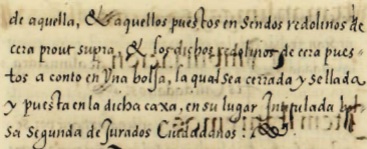 de aquella, & aquellos puestos en sendos redolinos de
cera prout supra, & los dichos redolinos de cera pues-
tos a conto en vna bolsa, la qual sea cerrada y sellada
y puesta en la dicha caxa, en su lugar Intitulada bol-
sa segunda de Jurados Ciudadanos: